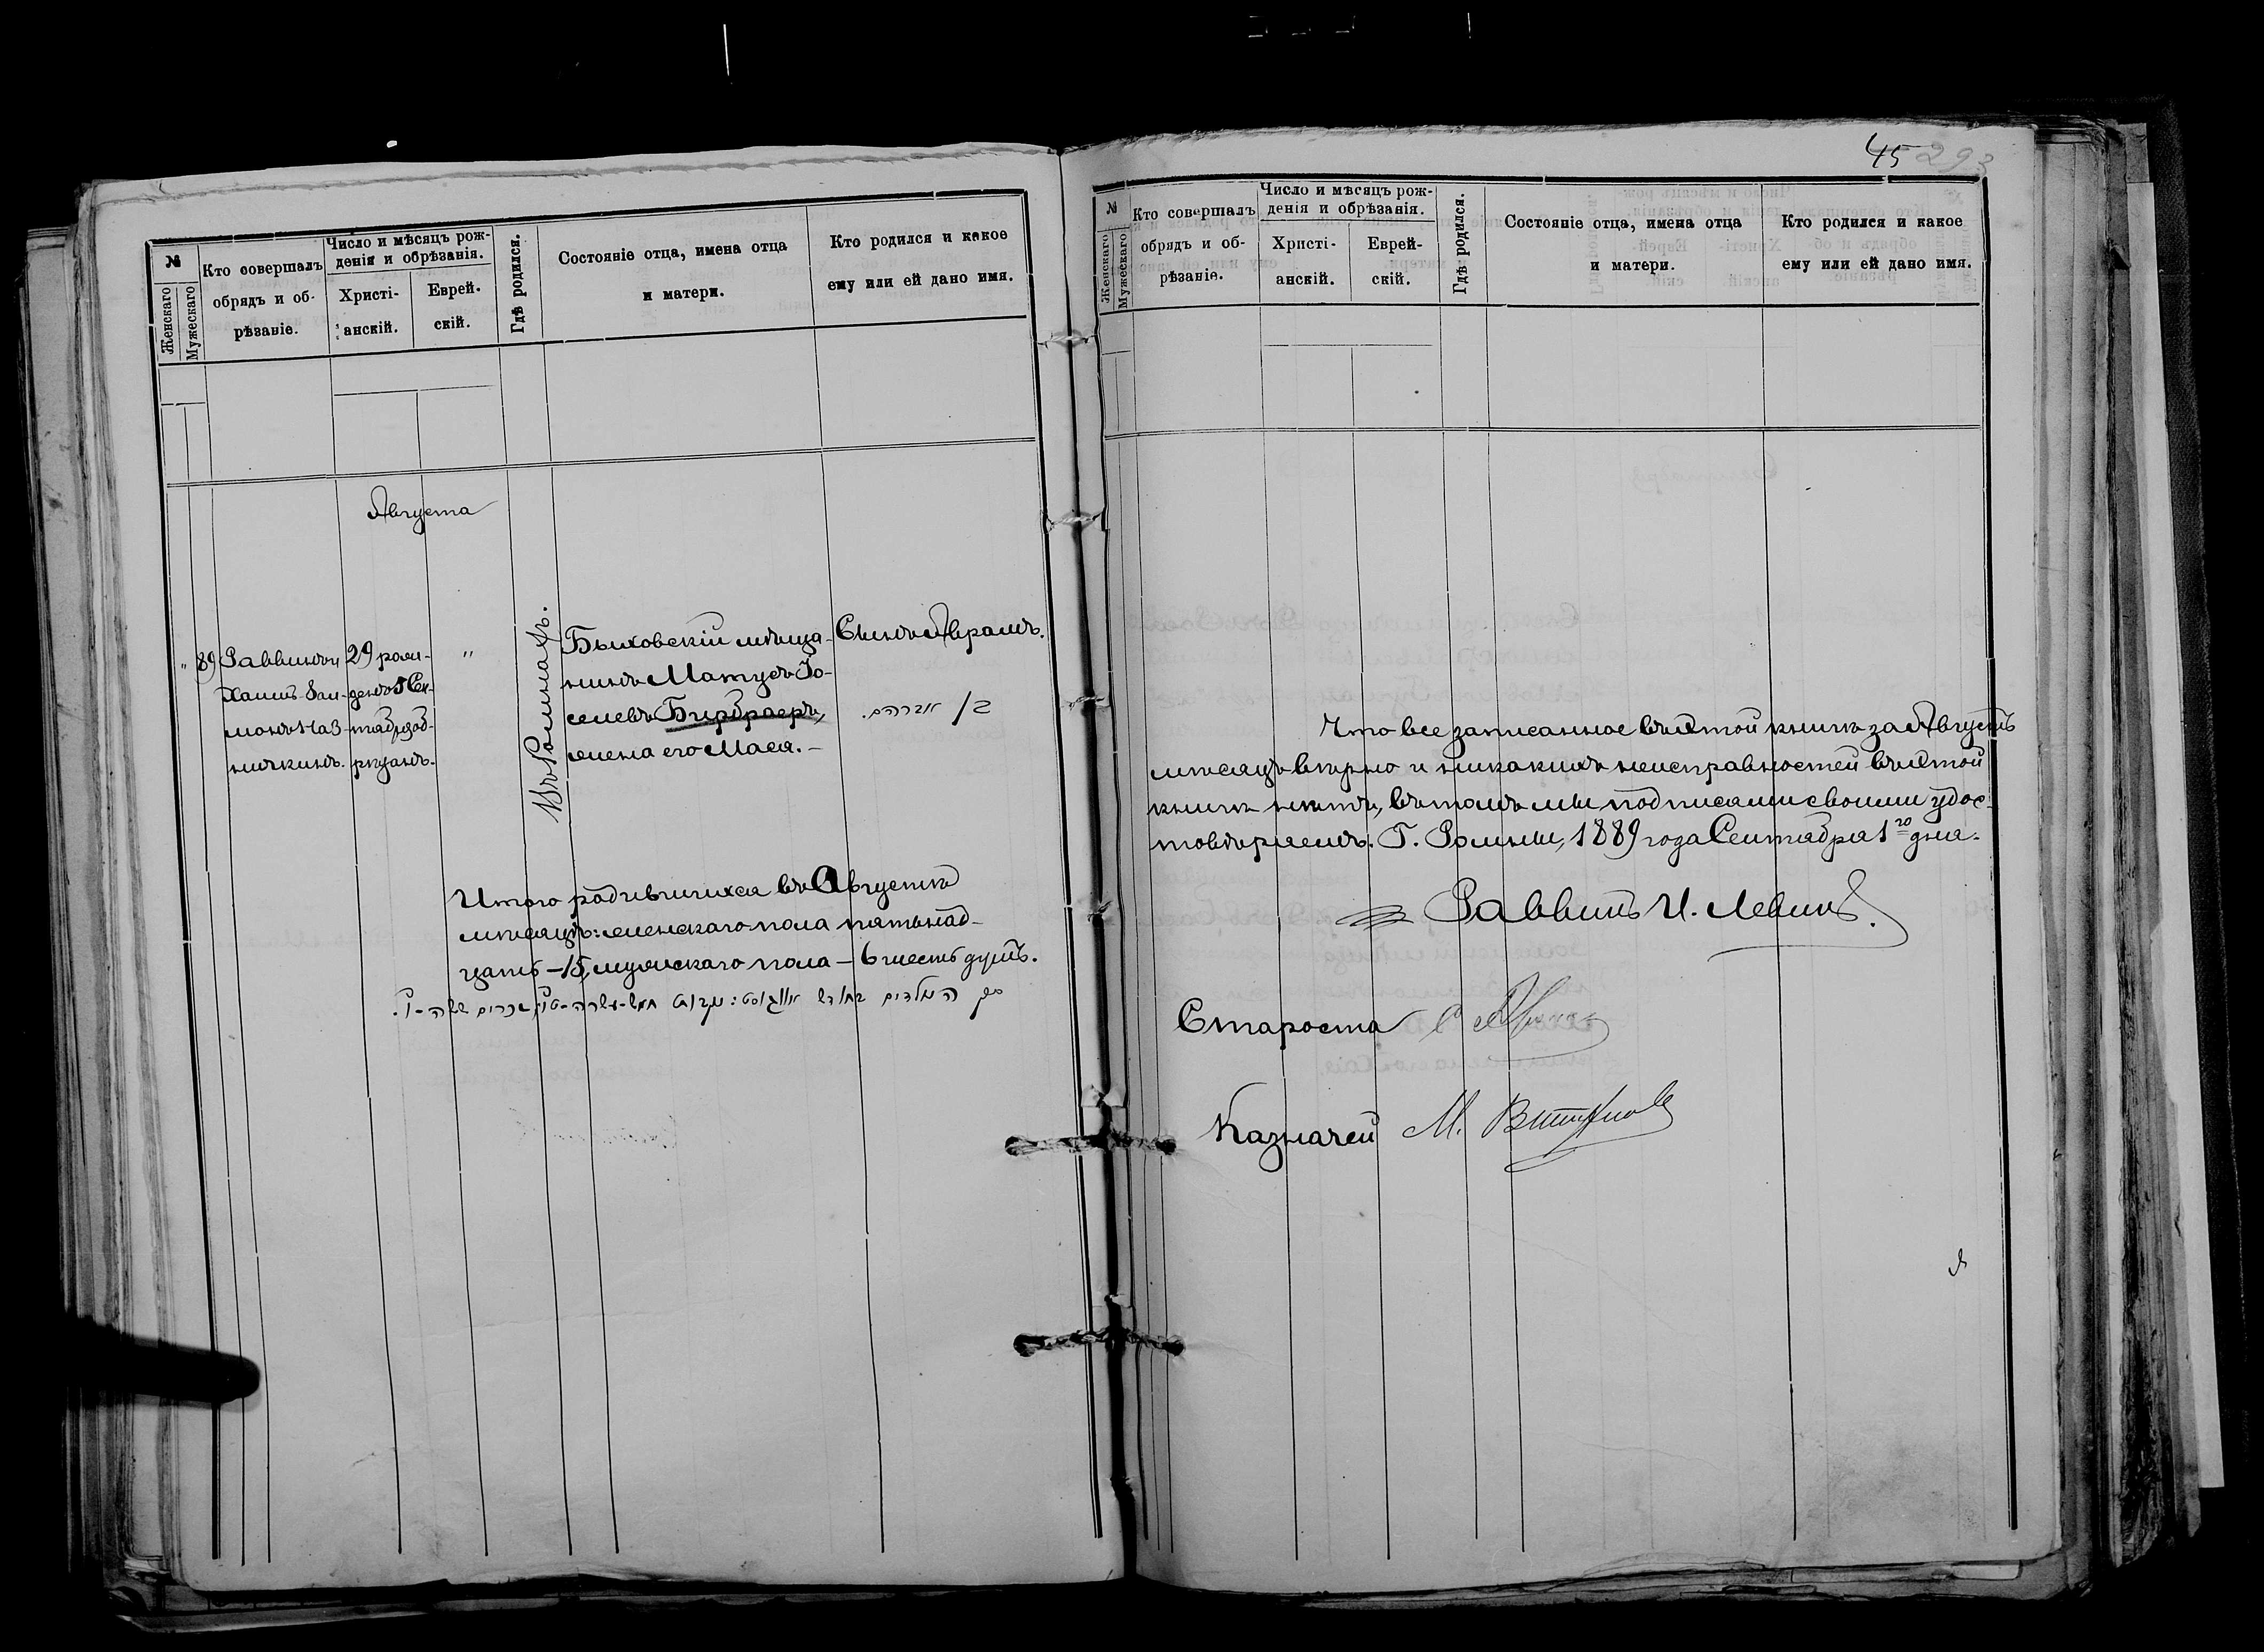 №
Женскаго
Мужескаго
Кто совершалъ
обрядъ и об-
рѣзаніе.
Число и мѣсяцъ рож-
денія и обрѣзанія.
Христі-
анскій.
Еврей-
скій.
Гдѣ родился.
Состояніе отца, имена отца
и матери.
Кто родился и какое
ему или ей дано имя.
Августа
" 89
Раввинъ и
Хаимъ Зал-
монъ Наз-
ничкинъ.
29 рож-
денъ 5 Сен-
тября об-
рѣзанъ.
"
Въ Ромнахъ.
Быховскій мѣща-
нинъ Матусъ Іо-
селевъ Бирбраеръ,
жена его Мася. –
Сынъ Абрамъ.
ב/ אברהם.
Итого родившихся въ Августѣ
мѣсяцѣ: женскаго пола пятьнад-
цать – 15, мужескаго пола – 6 шесть душъ.
הילדים בחודש אוגוסט: נקבות חמש-עשרה-ט"ו, זכרים ששה-ו'.
45 293
№
Женскаго
Мужескаго
Кто совершалъ
обрядъ и об-
рѣзаніе.
Число и мѣсяцъ рож-
денія и обрѣзанія.
Христі-
анскій.
Еврей-
скій.
Гдѣ родился.
Состояніе отца, имена отца
и матери.
Кто родился и какое
ему или ей дано имя.
Что все записанное въ этой книгѣ за Августъ
мѣсяцъ вѣрно и никакихъ неисправностей въ этой
книгѣ нѣтъ, въ томъ мы подписями своими удос-
товѣряемъ. Г. Ромны, 1889 года Сентября 1го дня.
Раввинъ И. Левинъ.
Староста
Казначей М.